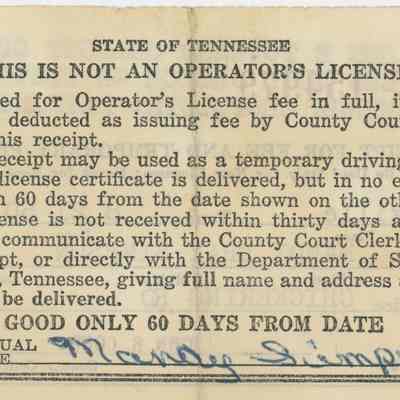 STATE OF TENNESSEE
HIS IS NOT AN OPERATOR'S LICENSE
ed for Operator's License fee in full, i
deducted as issuing fee by County Cou
his receipt.
eceipt may be used as a temporary driving
license certificate is delivered, but in no e
n 60 days from the date shown on the oth
ense is not received within thirty days a
communicate with the County Court Clerk
pt, or directly with the Department of S
, Tennessee, giving full name and address
be delivered.
GOOD ONLY 60 DAYS FROM DATE
UAL
E